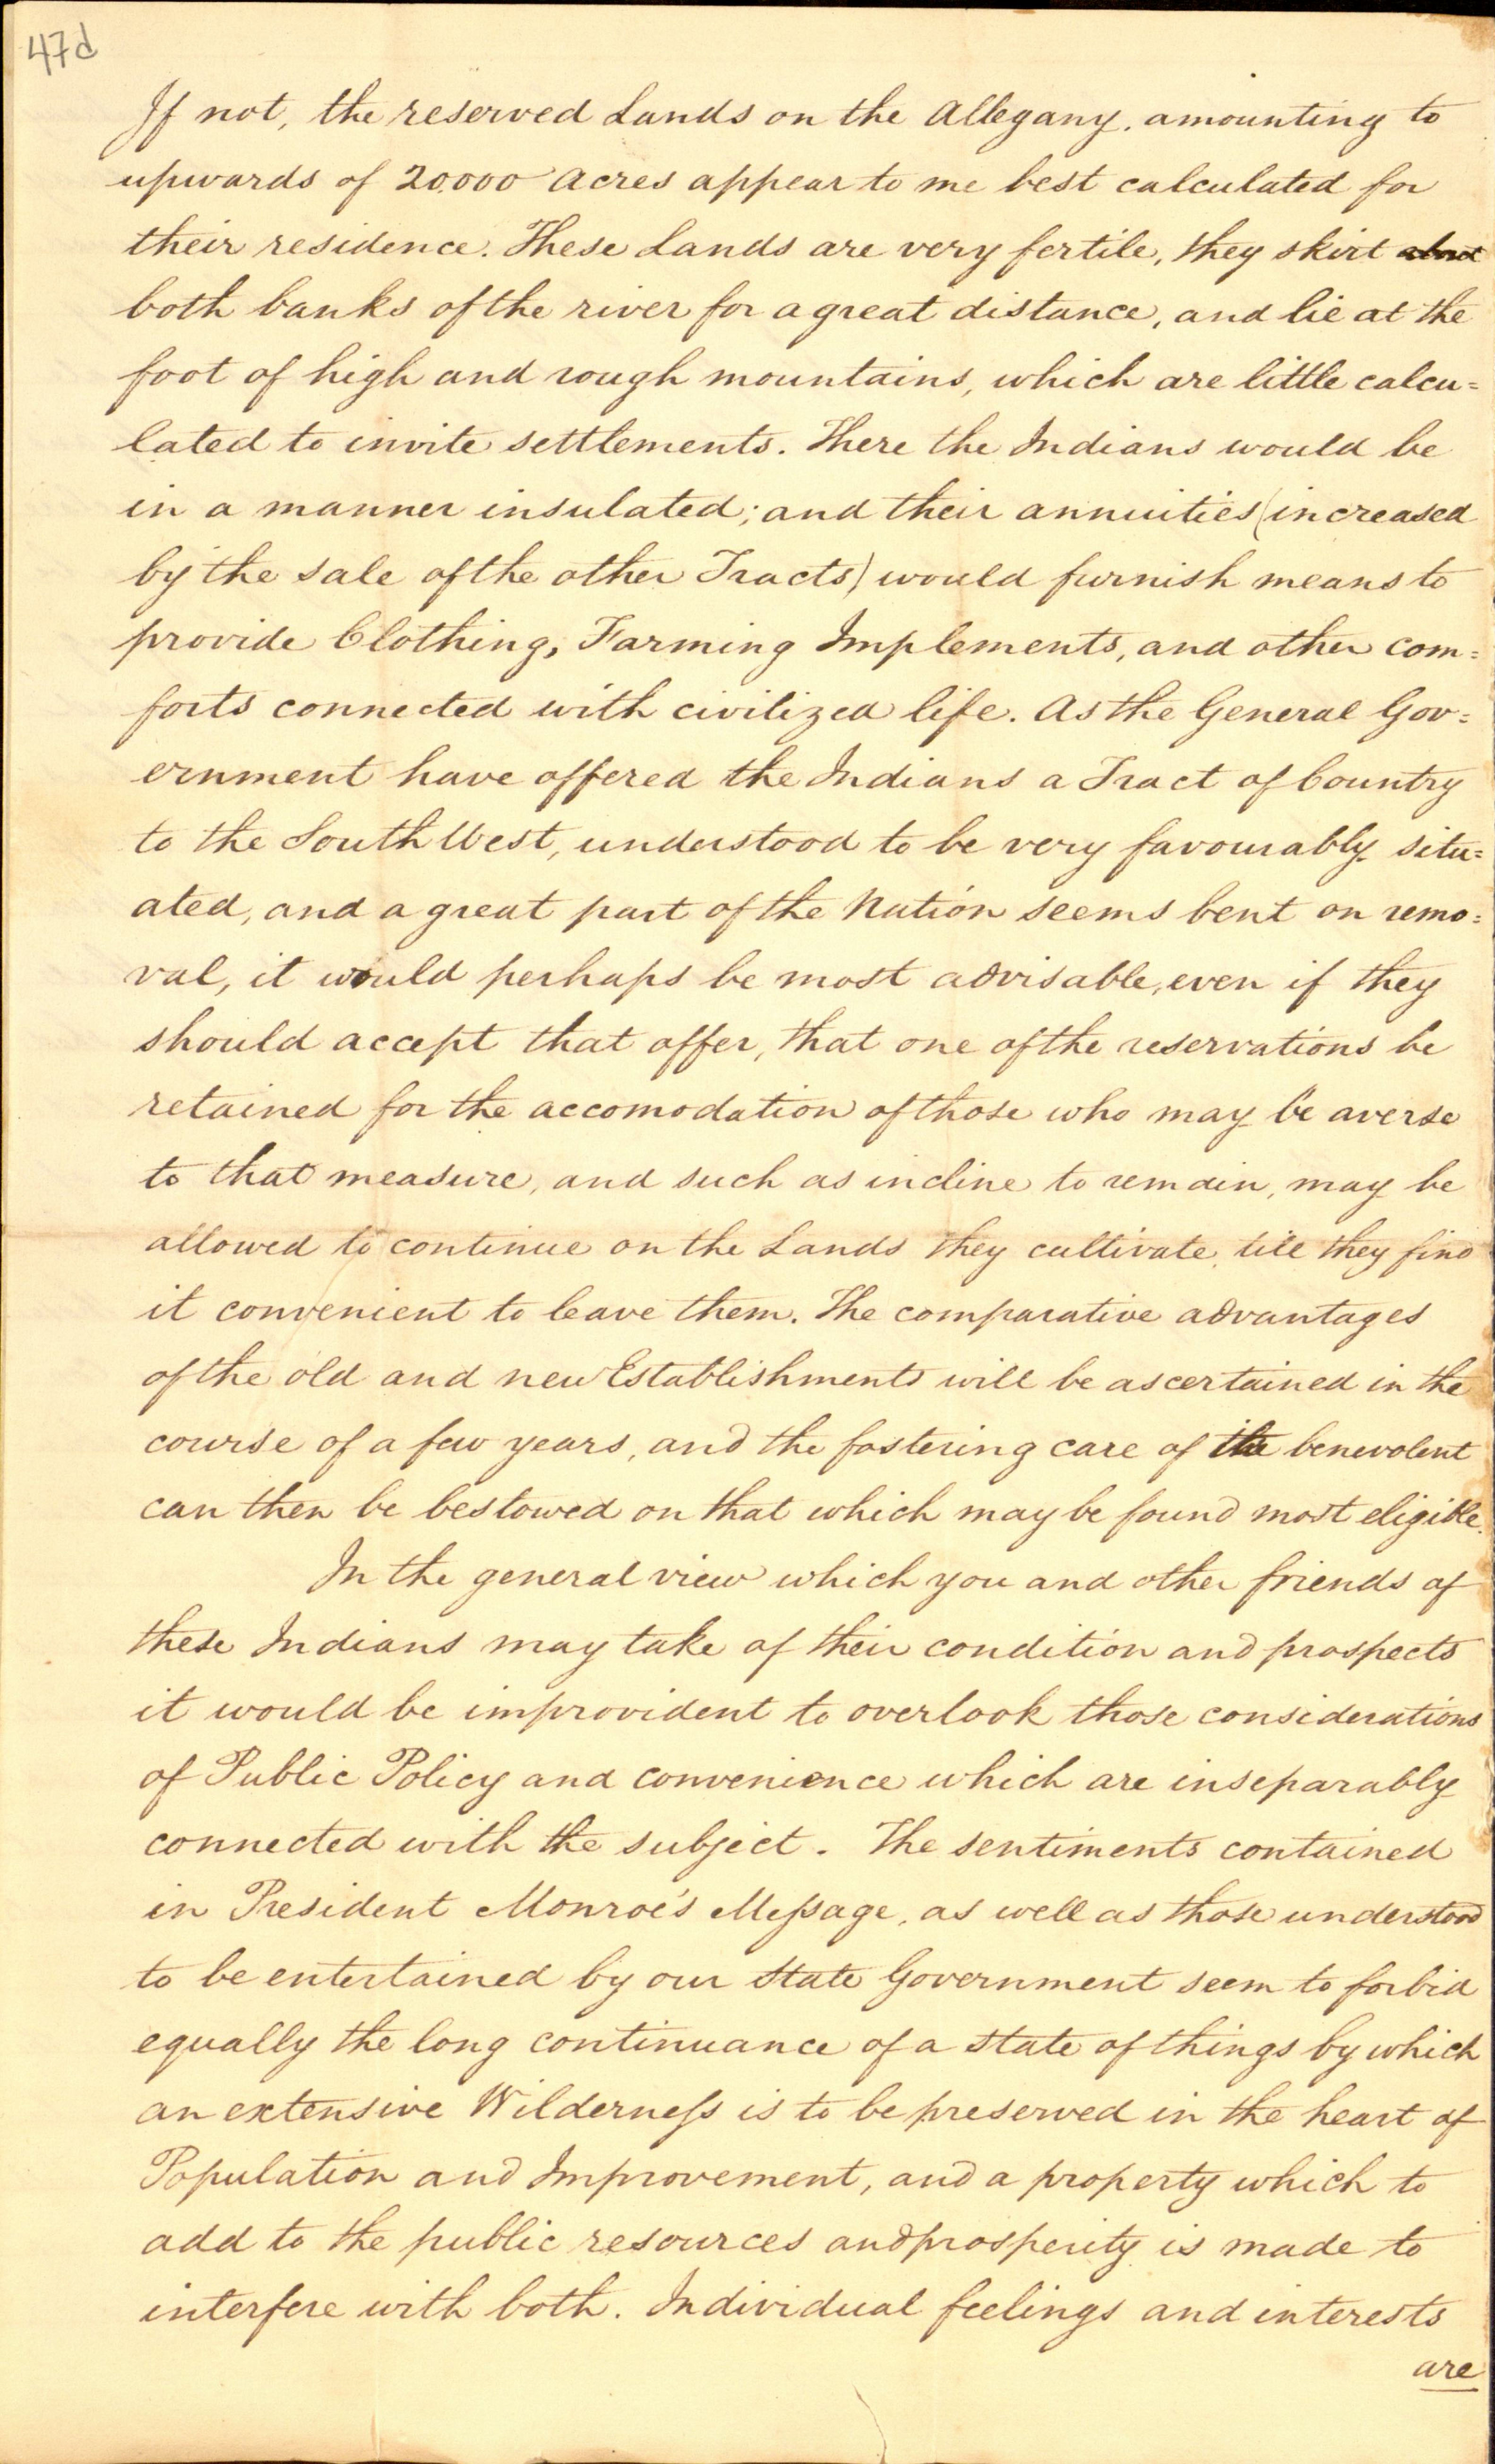 47d
If not, the reserved Lands on the Allegany, amounting to
upwards of 20.000 Acres appear to me best calculated for
their residence. These Lands are very fertile, they skirt
both banks of the river for a great distance, and lie at the
foot of high and rough mountains, which are little calcu=
lated to invite settlements. There the Indians would be
in a manner insulated; and their annuities (increased
by the sale of the other Tracts) would furnish means to
provide Clothing, Farming Implements, and other com=
forts connected with civilized life. As the General Gov=
ernment have offered the Indians a Tract of Country
to the South West, understood to be very favourably situ=
ated, and a great part of the Nation seems bent on remo=
val, it would perhaps be most advisable, even if they
should accept that offer, that one of the reservations be
retained for the accomodation of those who may be averse
to that measure, and such as incline to remain, may be
allowed to continue on the Lands they cultivate, till they find
it convenient to leave them. The comparative advantages
of the old and new Establishments will be ascertained in the
course of a few years, and the fostering care of the benevolent
can then be bestowed on that which may be found most eligible.
In the general view which you and other friends of
these Indians may take of their condition and prospects
it would be improvident to overlook those considerations
of Public Policy and convenience which are inseparably
connected with the subject. The sentiments contained
in President Monroe's Meſsage, as well as those understood
to be entertained by our State Government seem to forbid
equally the long continuance of a state of things by which
an extensive Wilderneſs is to be preserved in the heart of
Population and Improvement, and a property which to
add to the public resources and prosperity is made to
interfere with both. Individual feelings and interests
are